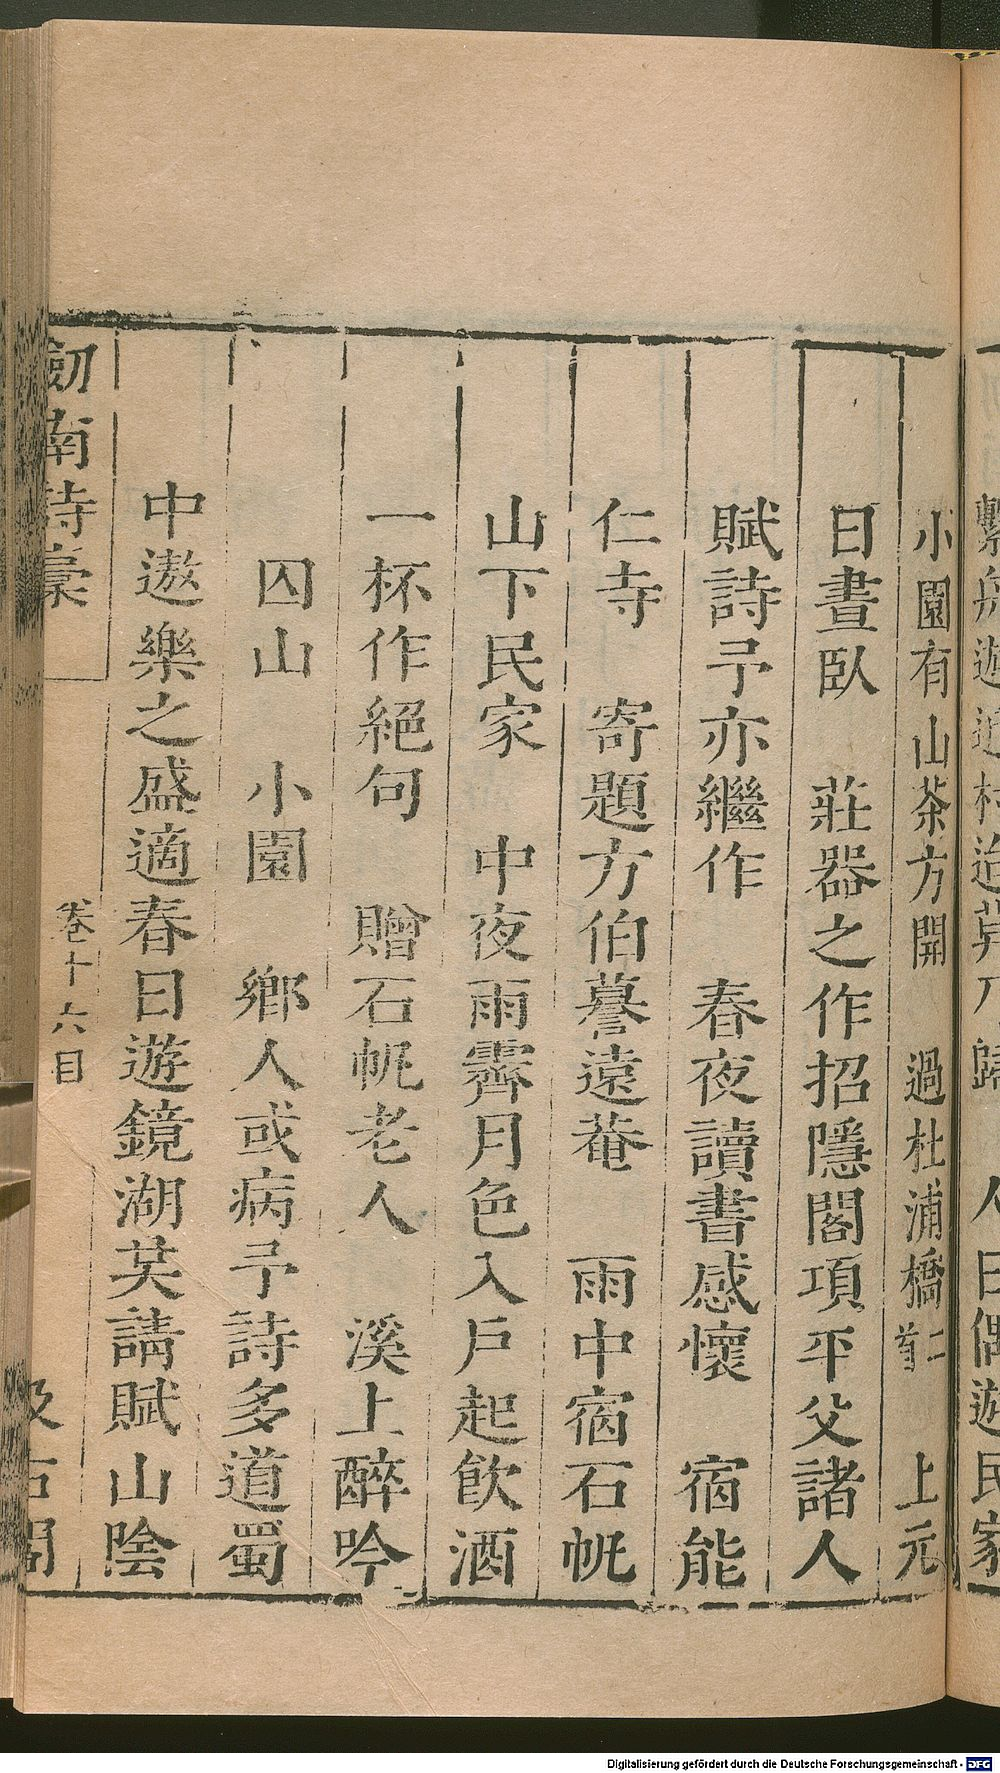 小園有山茶方開　過杜浦橋二首　上元
日晝臥　莊器之作招隱閣項平父諸人
賦詩予亦繼作　春夜讀書感懷　宿能
仁寺　寄題方伯謩遠菴　雨中宿石帆
山下民家　中夜雨霽月色入戶起飲酒
一杯作絕句　贈石帆老人　溪上醉吟
囚山　小園　鄉人或病予詩多道蜀
中遨樂之盛適春日遊鏡湖共請賦山陰
劒南詩稾　卷十六目　汲古閣
Digitalisierung gefördert durch die Deutsche Forschungsgemeinschaft - DFG